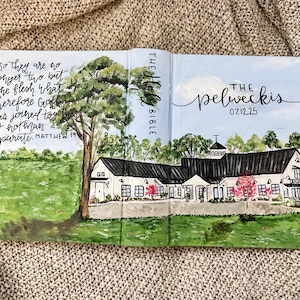 so they are no
longer two but
one flesh. What
therefore God
has joined to
let no man
separate. MATTHEW 19
THE HOLY BIBLE
THE
pelweckis
07.12.25